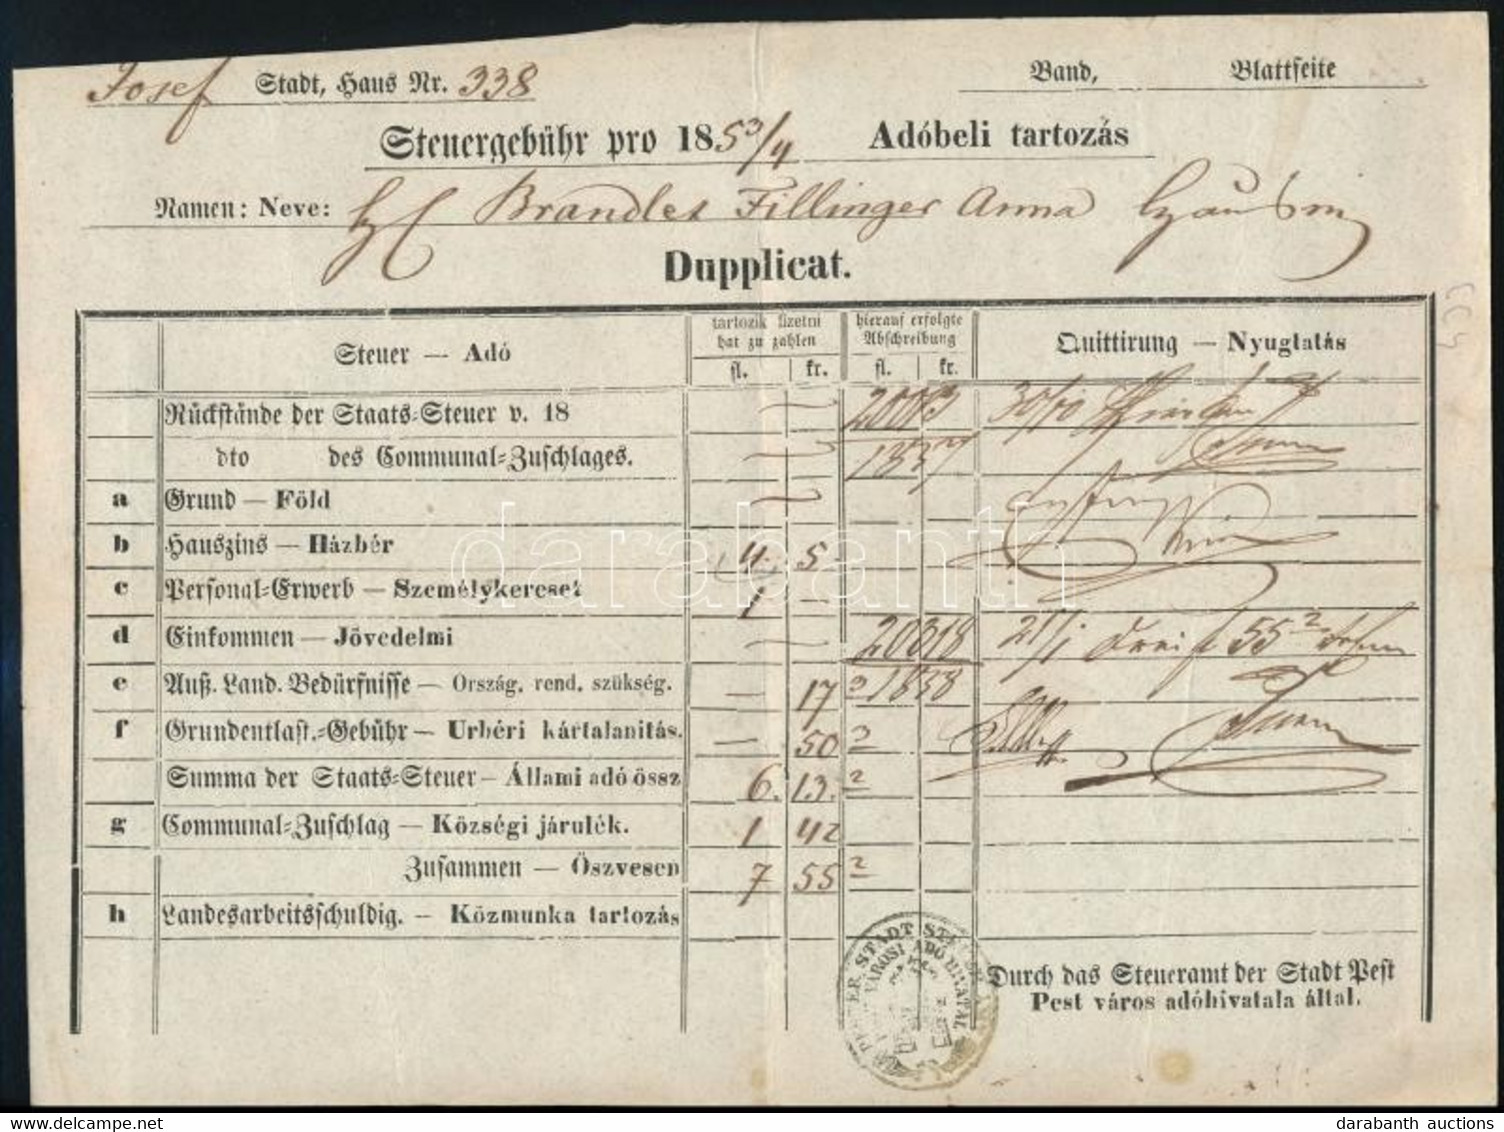 Josef Stadt, Haus Nr. 338 Band, Blattseite
Steuergebühr pro 1853/4 Adóbeli tartozás
Namen: Neve: Brandles Fillinger Anna
Dupplicat.
Steuer — Adó
tartozik fizetni
hat zu zahlen
fl. kr.
hierauf erfolgte
Abschreibung
fl. kr.
Quittirung — Nyugtatás
Rückstände der Staats-Steuer v. 18
dto des Communal-Zuschlages.
a Grund — Föld
b Hauszins — Házbér 4. 5
c Personal-Erwerb — Személykereset 1 —
d Einkommen — Jövedelmi 20318
e Auß. Land. Bedürfnisse — Ország. rend. szükség. — 17 3 1858
f Grundentlast.-Gebühr — Urbéri kártalanitás. — 50 2
Summa der Staats-Steuer — Állami adó össz 6. 13. 2
g Communal-Zuschlag — Községi járulék. 1 42
Zusammen — Öszvesen 7 55 2
h Landesarbeitsschuldig. — Közmunka tartozás
Durch das Steueramt der Stadt Pest
Pest város adóhivatala által.
VÁROSI ADÓ HIVATAL
darabanth
darabanth auctions